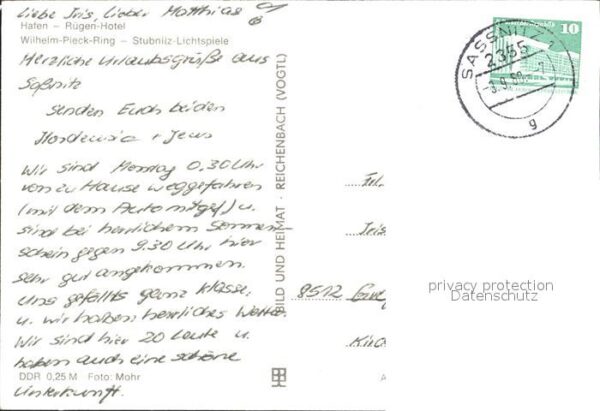 Liebe Iris, lieber Matthias
Hafen – Rügen-Hotel
Wilhelm-Pieck-Ring – Stubnitz-Lichtspiele
Herzliche Urlaubsgrüße aus
Saßnitz
senden Euch beiden
+ Jens
Wir sind Montag 0.30 Uhr
von zu Hause weggefahren
(mit dem Auto) u.
sind bei herrlichem Sonnen
schein gegen 9.30 Uhr hier
sehr gut angekommen.
Uns gefällts ganz klasse,
u. wir haben herrliches Wetter
Wir sind hier 20 Leute u.
haben auch eine schöne
DDR 0,25 M Foto: Mohr
Unterkunft.
BILD UND HEIMAT · REICHENBACH (VOGTL)
SASSNITZ 1
2355
g
10
Iris
privacy protection
Datenschutz
A